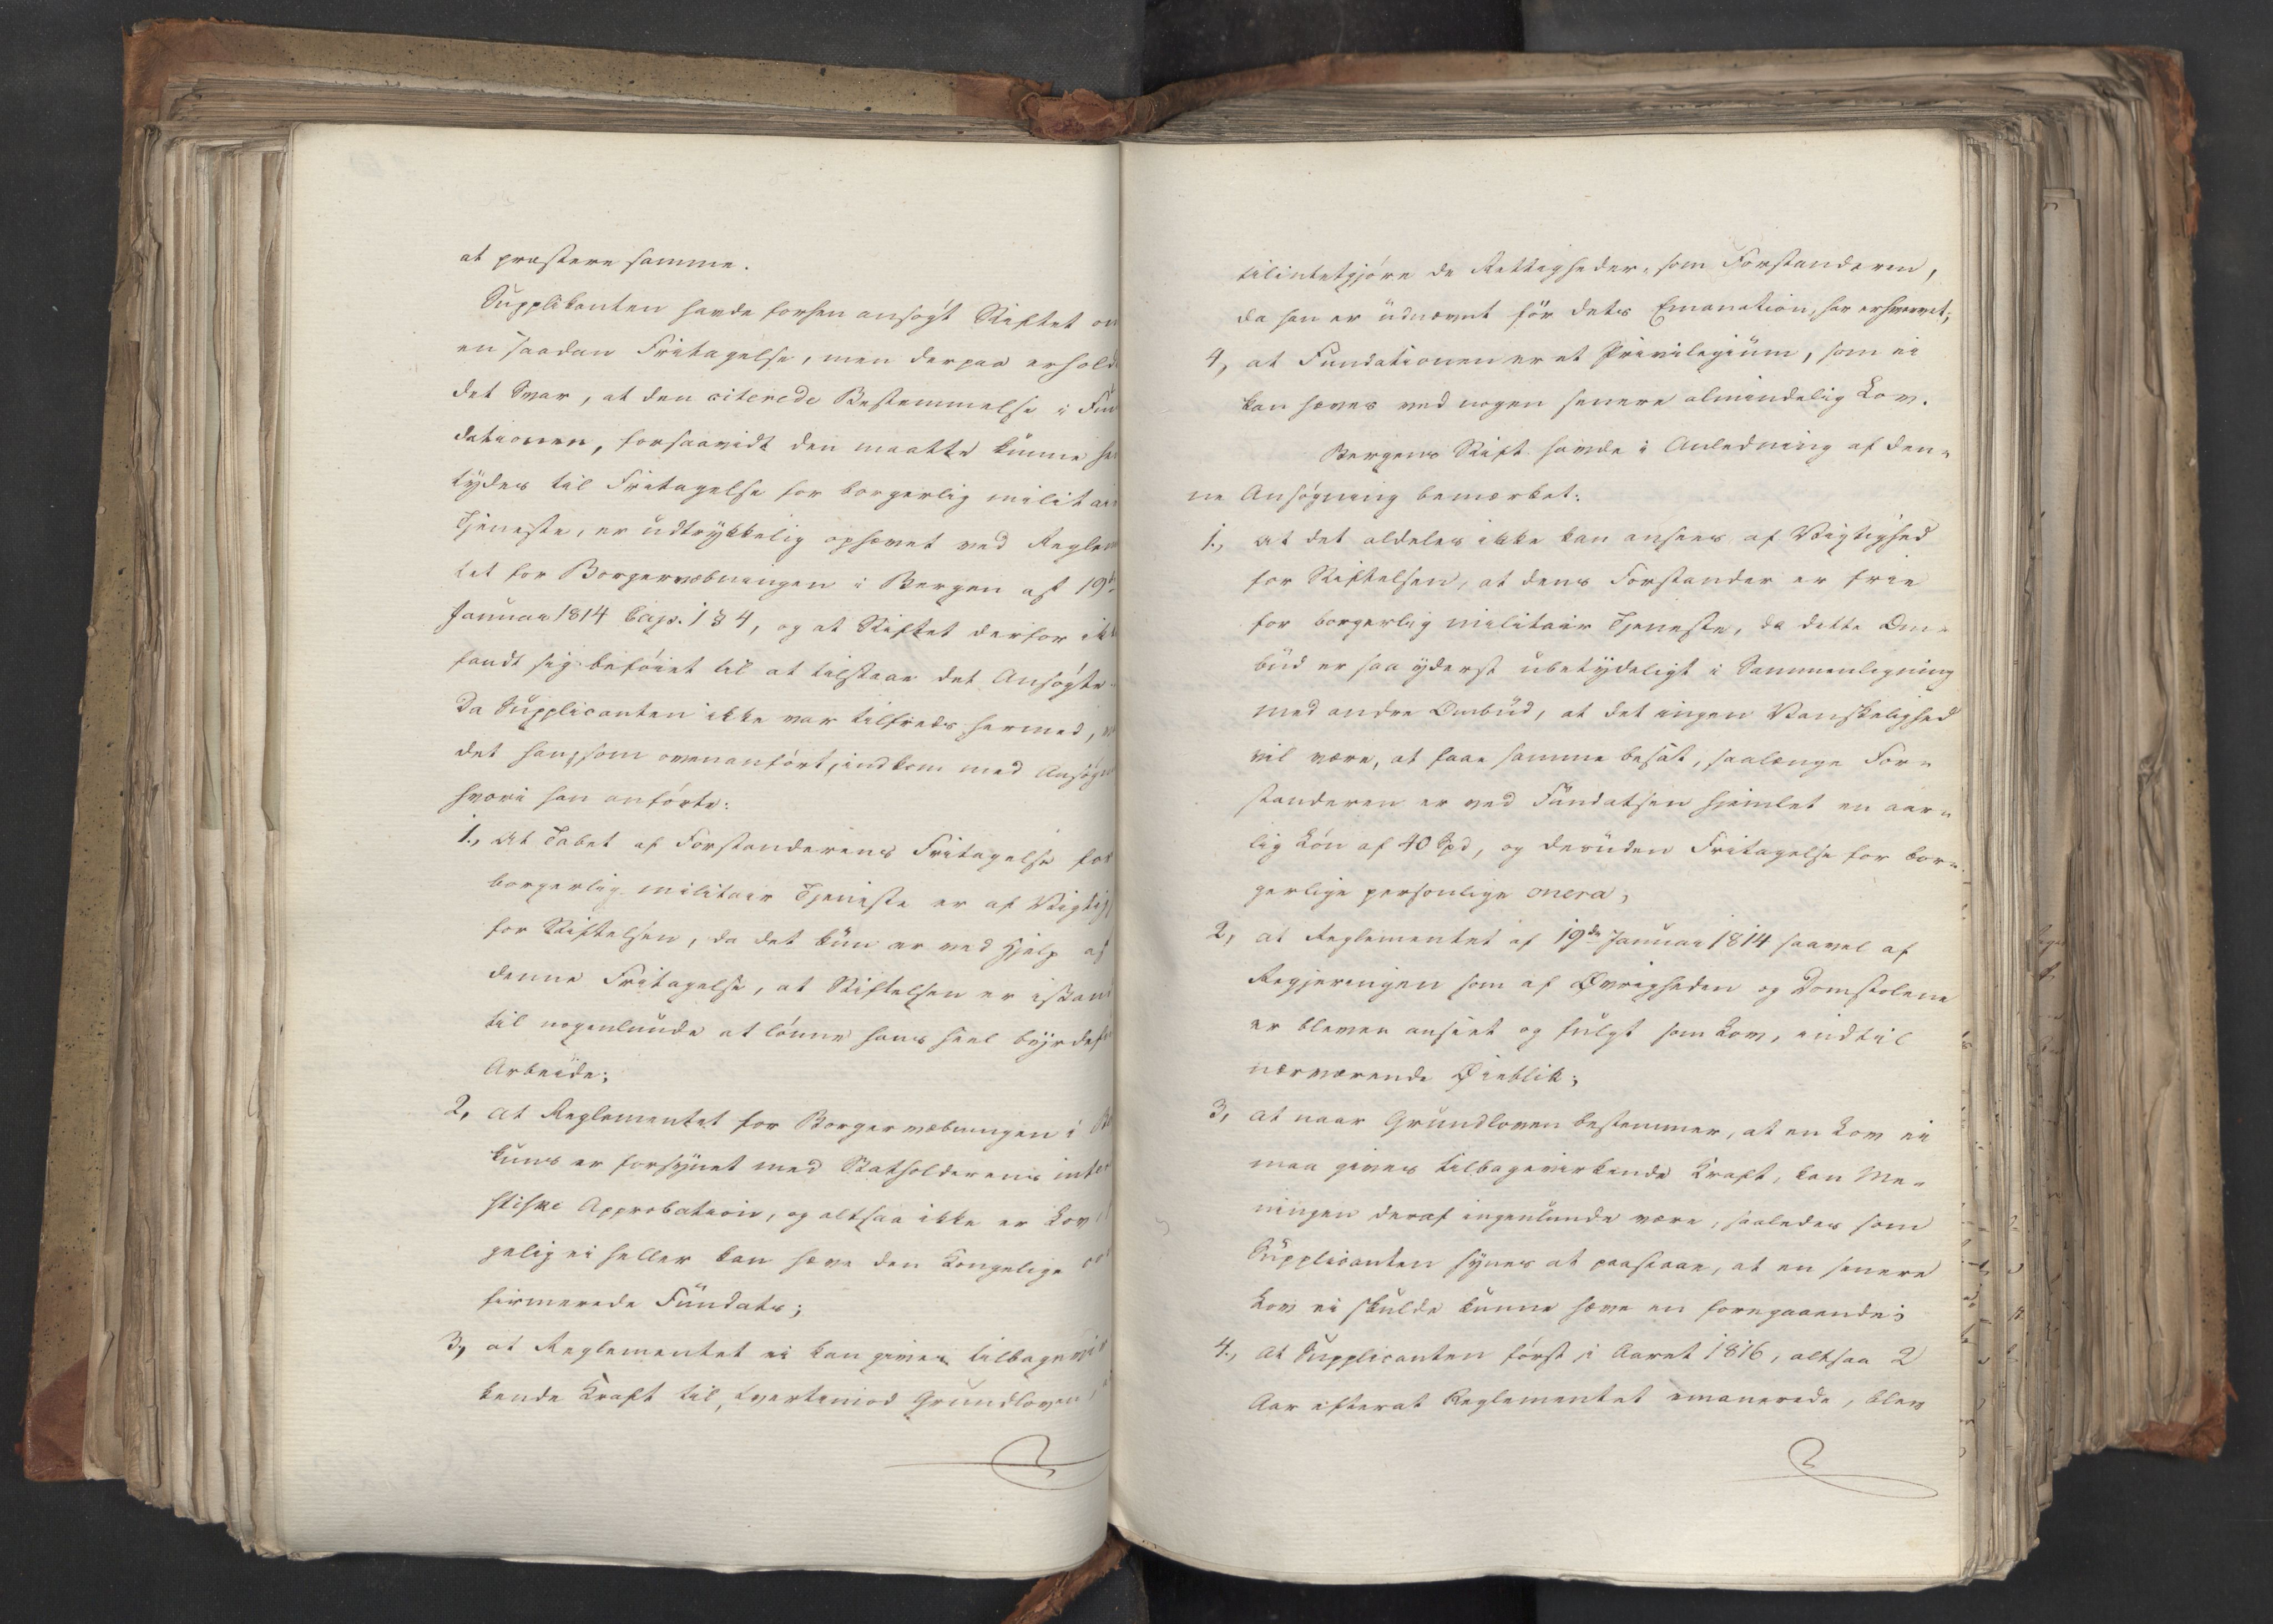 at præstere samme.
Supplikanten havde forhen ansøgt Stiftet om
en saadan Fritagelse, men derpaa erholdt
det Svar, at den citerede Bestemmelse i Fun
dationen, forsaavidt den maatte kunne hen
tydes til Fritagelse for borgerlig militair
Tjeneste, er udtrykkelig ophævet ved Reglem
tet for Borgervæbningen i Bergen af 19de
Januar 1814 Cap. 1 § 4, og at Stiftet derfor ikke
fandt sig beføiet til at tilstaae det Ansøgte.
Da Supplicanten ikke var tilfreds hermed,
det han, som ovenanført, indkom med Ansøgn
hvori han anførte:
1., At Tabet af Forstanderens Fritagelse for
borgerlig militair Tjeneste er af Vigtig
for Stiftelsen, da det kun er ved Hjelp af
denne Fritagelse, at Stiftelsen er istand
til nogenlunde at lønne hans heel byrdefu
Arbeide;
2, at Reglementet for Borgervæbningen i Be
kuns er forsynet med Statholderens inter
stiske Approbation, og altsaa ikke er Lov
gelig ei heller kan hæve den Kongelige con
firmerede Fundats;
3., at Reglementet ei kan gives tilbagevir
kende Kraft til, tvertimod Grundloven,
tilintetgjøre de Rettigheder, som Forstanderen,
da han er udnævnt før dets Emanation, har erhvervet;
4, at Fundationen er et Privilegium, som ei
kan hæves ved nogen senere almindelig Lov.
Bergens Stift havde i Anledning af den-
ne Ansøgning bemærket:
1., at det aldeles ikke kan ansees af Vigtighed
for Stiftelsen, at dens Forstander er frie
for borgerlig militair Tjeneste, da dette Om-
bud er saa yderst ubetydeligt i Sammenligning
med andre Ombud, at det ingen Vanskelighed
vil være, at faae samme besat, saalænge For-
standeren er ved Fundatsen hjemlet en aar-
lig Løn af 40 Spd, og desuden Fritagelse for bor-
gerlige personlige onera,
2, at Reglementet af 19de Januar 1814 saavel af
Regjeringen som af Øvrigheden og Domstolene
er bleven anseet og fulgt som Lov, indtil
nærværende Øieblik;
3, at naar Grundloven bestemmer, at en Lov ei
maa gives tilbagevirkende Kraft, kan Me-
ningen deraf ingenlunde være, saaledes som
Supplicanten synes at paastaae, at en senere
Lov ei skulde kunne hæve en foregaaende;
4., At Supplicanten først i Aaret 1816, altsaa 2
Aar efterat Reglementet emanerede, blev